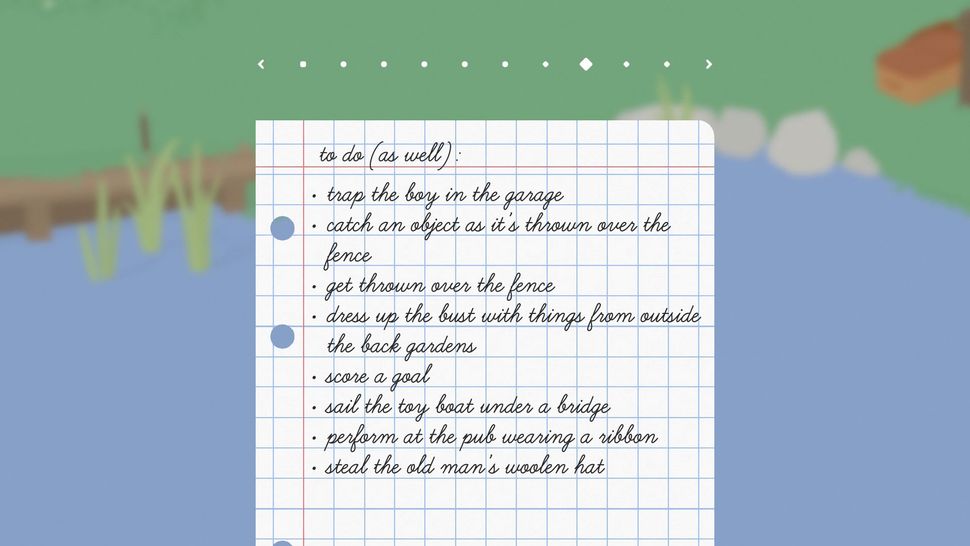 to do (as well):
• trap the boy in the garage
• catch an object as it's thrown over the
fence
• get thrown over the fence
• dress up the bust with things from outside
the back gardens
• score a goal
• sail the toy boat under a bridge
• perform at the pub wearing a ribbon
• steal the old man's woolen hat